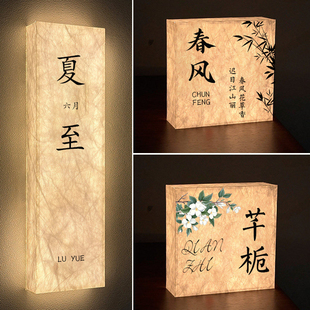 夏至
六月
LU YUE
春风
CHUN
FENG
春风花草香
迟日江山丽
芊栀
QIAN
ZHI